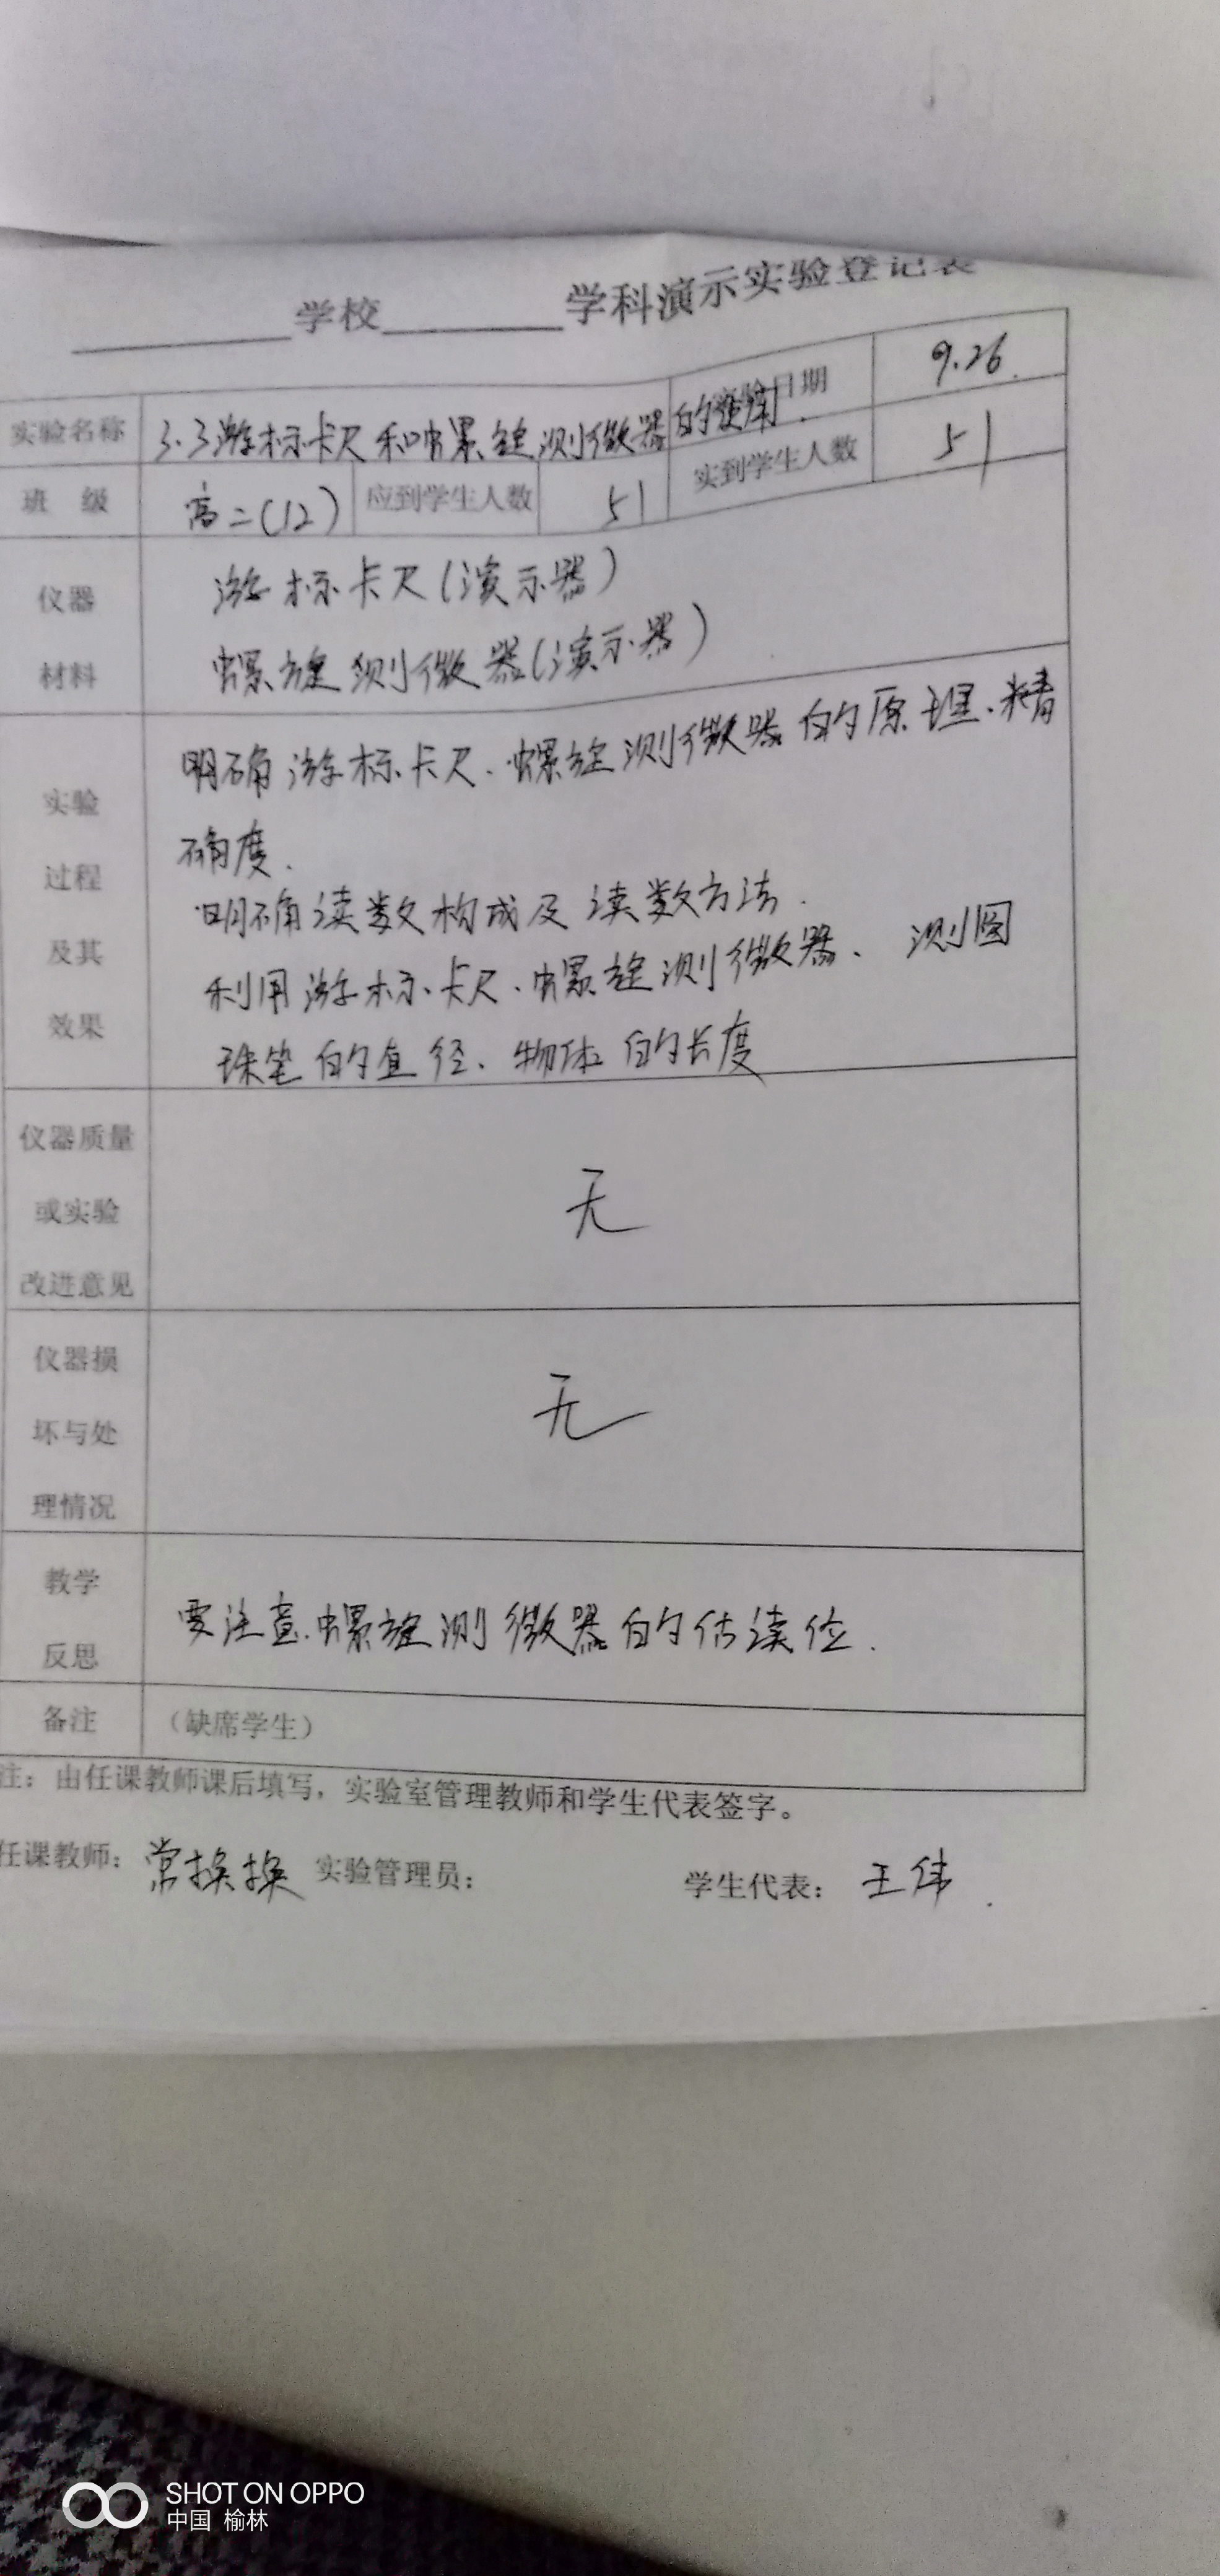 学校 学科演示实验登记表
实验名称 3.3游标卡尺和螺旋测微器的使用. 实验日期 9.26.
班 级 高二(12) 应到学生人数 51 实到学生人数 51
仪器 游标卡尺(演示器)
材料 螺旋测微器(演示器)
明确游标卡尺、螺旋测微器的原理、精
实验
确度.
过程
明确读数构成及读数方法.
及其
利用游标卡尺、螺旋测微器、测圆
效果
珠笔的直径、物体的长度
仪器质量
或实验 无
改进意见
仪器损
坏与处 无
理情况
教学
要注意螺旋测微器的估读位.
反思
备注 (缺席学生)
注：由任课教师课后填写，实验室管理教师和学生代表签字。
任课教师：常换换 实验管理员： 学生代表：王伟.
SHOT ON OPPO
中国 榆林